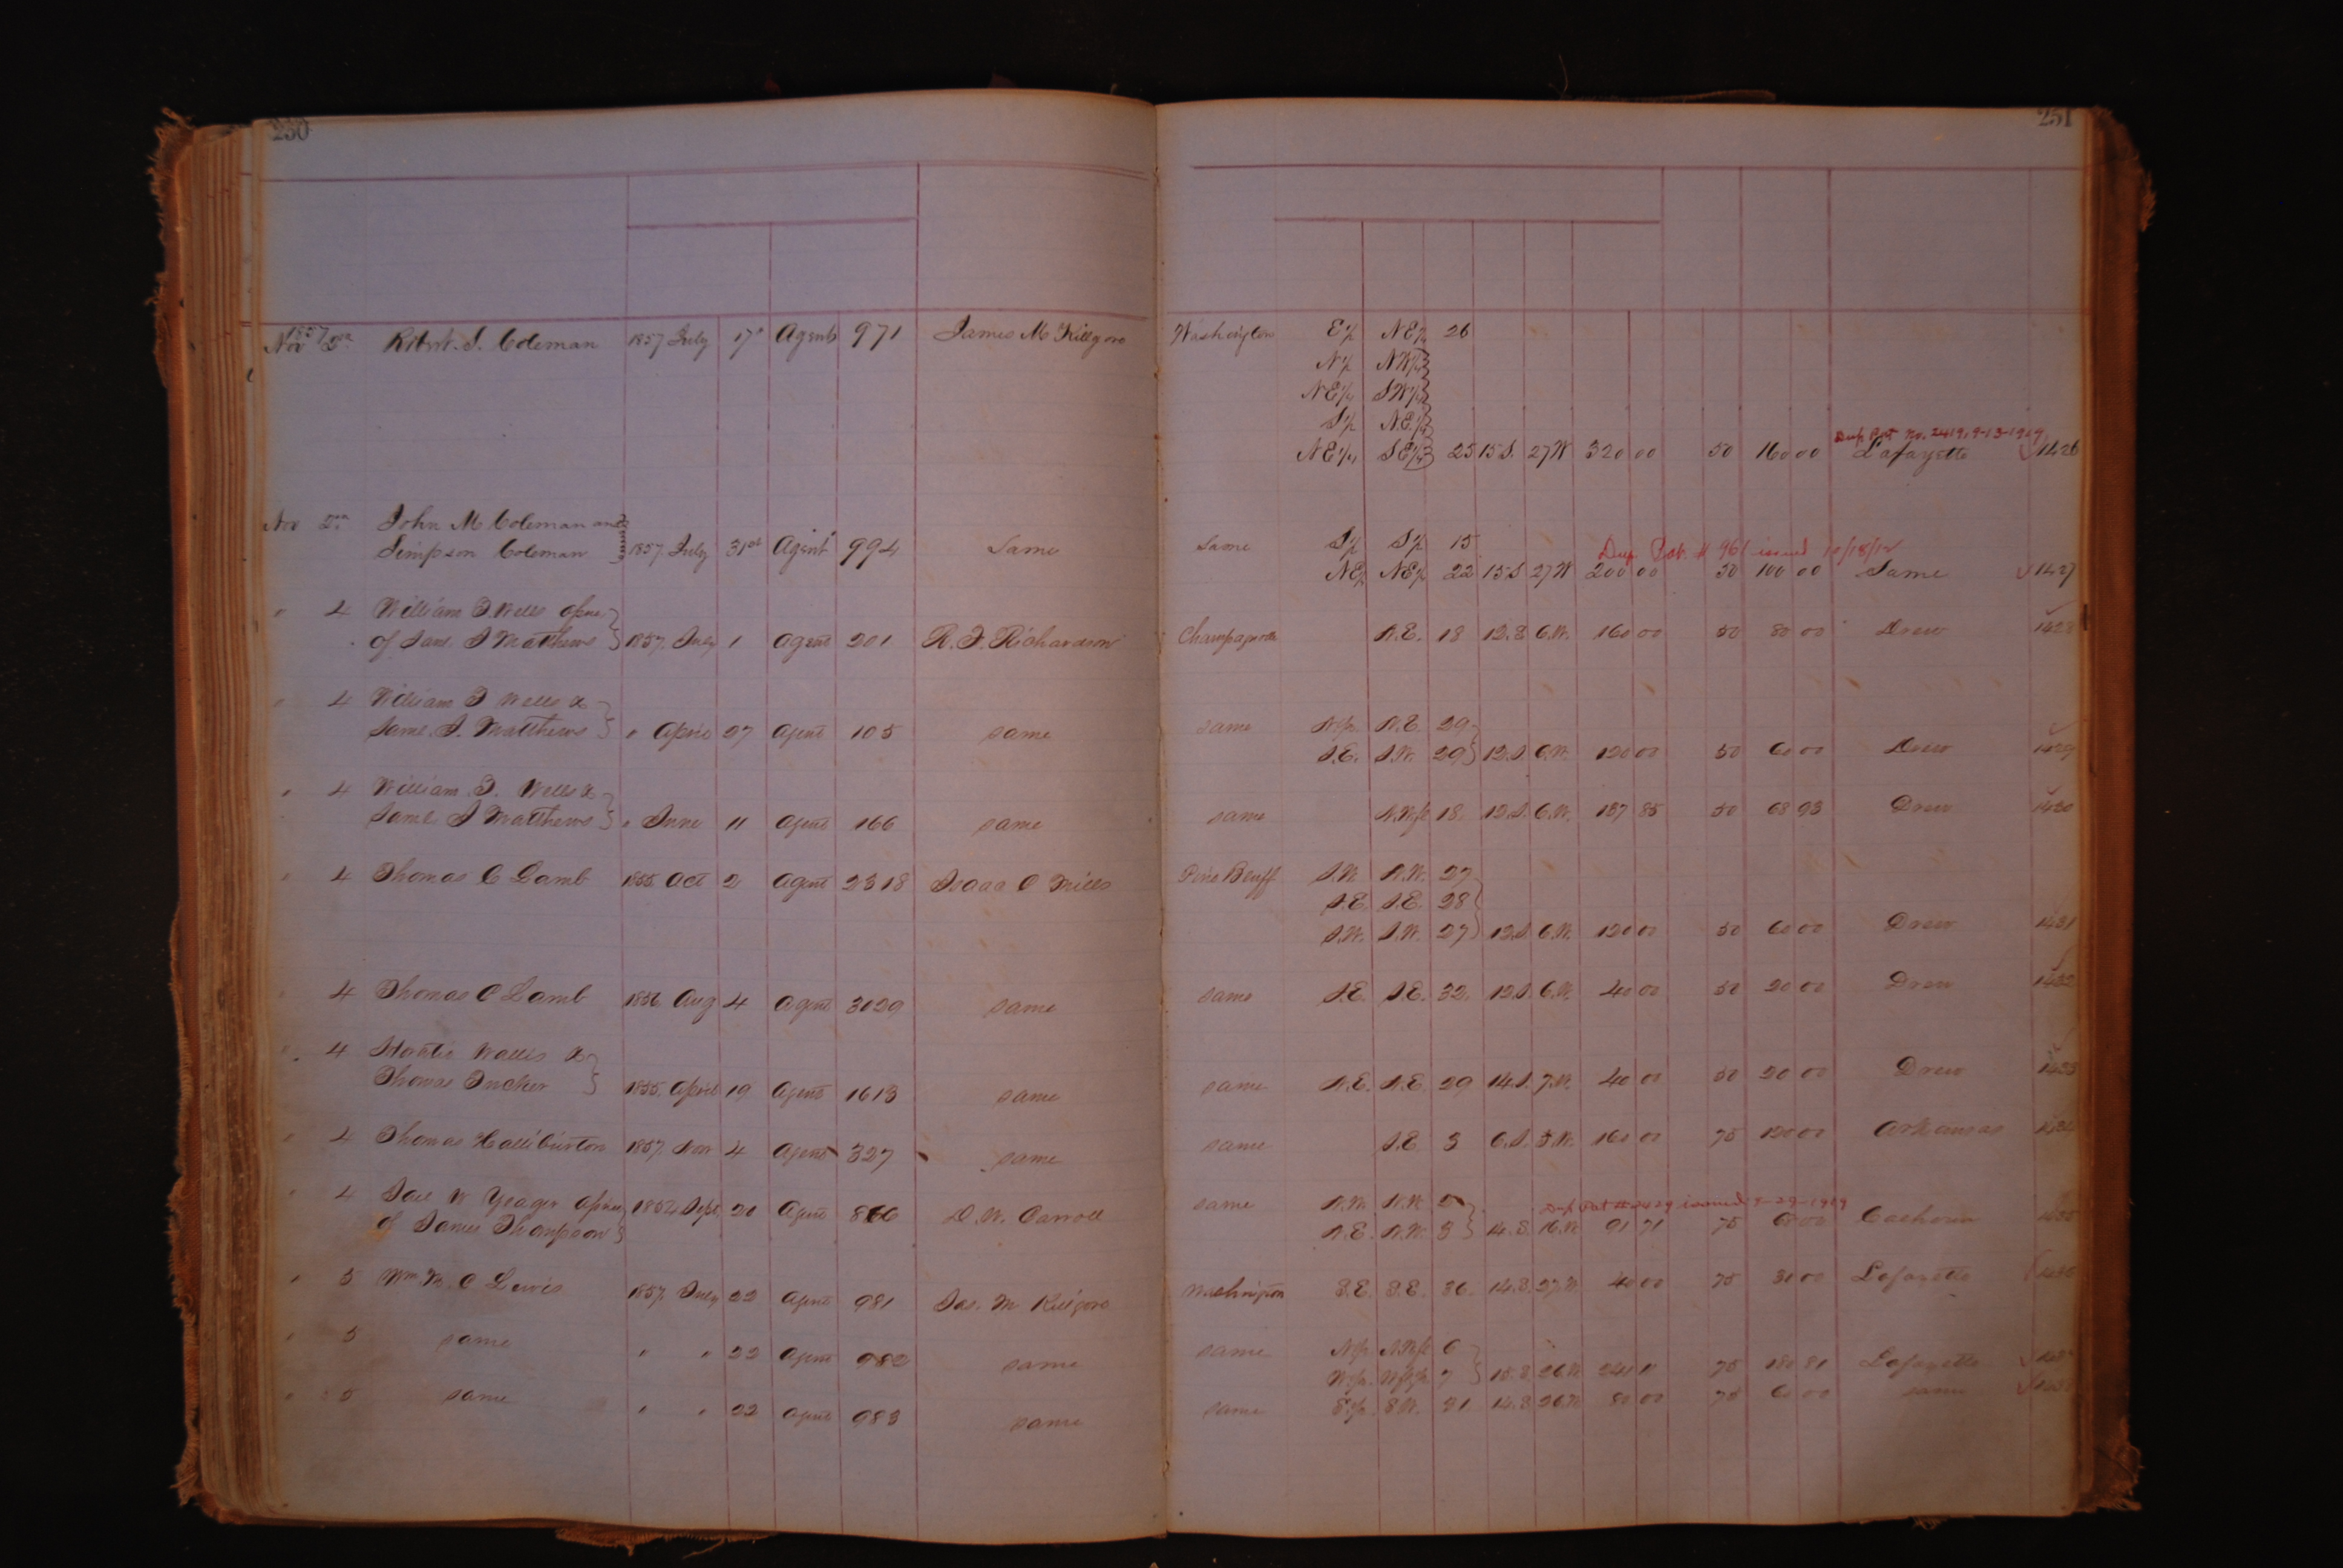 250
251
1857
Nov 2nd Robert. S. Coleman 1857 July 17th Agents 971 James M Killgore Washington E½ NE¼ 26
N½ NW¼
NE¼ SW¼
S½ N.E.¼
Dup Pat No. 2419, 9-13-1909
NE¼ SE¼ 25 15 S. 27 W 320 00 50 160 00 Lafayette 1426
Nov 2nd John M Coleman and
Simpson Coleman 1857. July 31st Agents 994 Same Same S½ S½ 15
Dup Pat. # 961 issued 10/18/12
NE¼ NE¼ 22 15 S 27 W 200 00 50 100 00 Same 1427
" 4 William T. Wells apnee
of Saml. S Matthews 1857. July 1 Agent 201 R. F. Richardson Champagnolle N.E. 18 12. S 6. W. 160 00 50 80 00 Drew 1428
" 4 William T Wells &
Saml. S. Matthews " April 27 Agent 105 same same W½ N.E. 29
S.E. S.W. 29 12. S. 6. W. 120 00 50 60 00 Drew 1429
" 4 William. T. Wells &
Saml. S Matthews " June 11 Agent 166 same same N.W¼ 18. 12. S. 6. W. 137 85 50 68 93 Drew 1430
" 4 Thomas C Lamb 1855. Oct 2 Agent 2318 Isaac C Mills Pine Bluff S.W. N.W. 27
S.E. S.E. 28
S.W. S.W. 27 12. S. 6. W. 120 00 50 60 00 Drew 1431
" 4 Thomas C Lamb 1856. Aug 4 Agent 3029 same same S.E. S.E. 32. 12. S. 6. W. 40 00 50 20 00 Drew 1432
" 4 Wallis &
Thomas Tucker 1855. April 19 Agent 1613 same same N.E. N.E. 29 14. S. 7. W. 40 00 50 20 00 Drew 1433
" 4 Thomas Halliburton 1857. Nov 4 Agent 327 same same S.E 3 6. S. 5. W. 160 00 75 120 00 Arkansas 1434
" 4 W Yeager apnee
of James Thompson 1854 Sept. 20 Agent 866 D. W. Carroll same N.W. N.W. 2
Dup Pat # 2429 issued 9-29-1909
N.E. N.W. 3 14. S. 16. W 91 71 75 68 00 Calhoun 1435
" 5 Wm. M. C Lewis 1857. July 22 Agent 981 Jas. M Killgore Washington S.E. S.E. 36. 14. S. 27. W. 40 00 75 30 00 Lafayette 1436
" 5 same " " 22 Agent 982 same same N½ N.W¼ 6
W½. 7 15. S. 26. W 241 11 75 180 81 Lafayette
" 5 same " " 22 Agent 983 same same E½. S.W. 31 14. S. 26. W 80 00 75 60 00 same